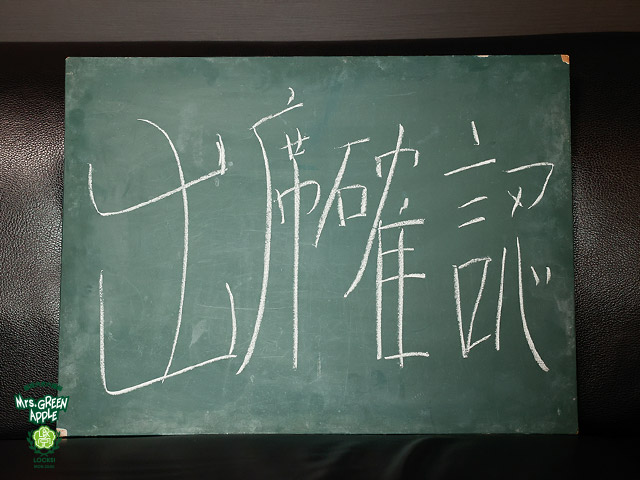 出席確認
Mrs. GREEN
APPLE
LOCKS!